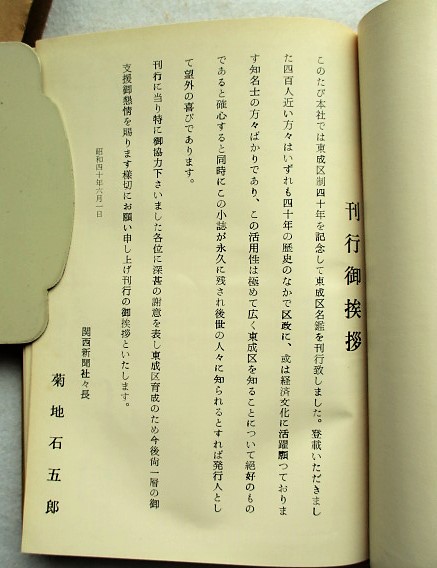 刊行御挨拶
このたび本社では東成区制四十年を記念して東成区名鑑を刊行致しました。登載いただきまし
た四百人近い方々はいずれも四十年の歴史のなかで区政に、或は経済文化に活躍願つておりま
す知名士の方々ばかりであり、この活用性は極めて広く東成区を知ることについて絶好のもの
であると確心すると同時にこの小誌が永久に残され後世の人々に知られるとすれば発行人とし
て望外の喜びであります。
刊行に当り特に御協力下さいました各位に深甚の謝意を表し東成区育成のため今後尚一層の御
支援御懇情を賜ります様切にお願い申し上げ刊行の御挨拶といたします。
昭和四十年六月一日
関西新聞社々長
菊地石五郎